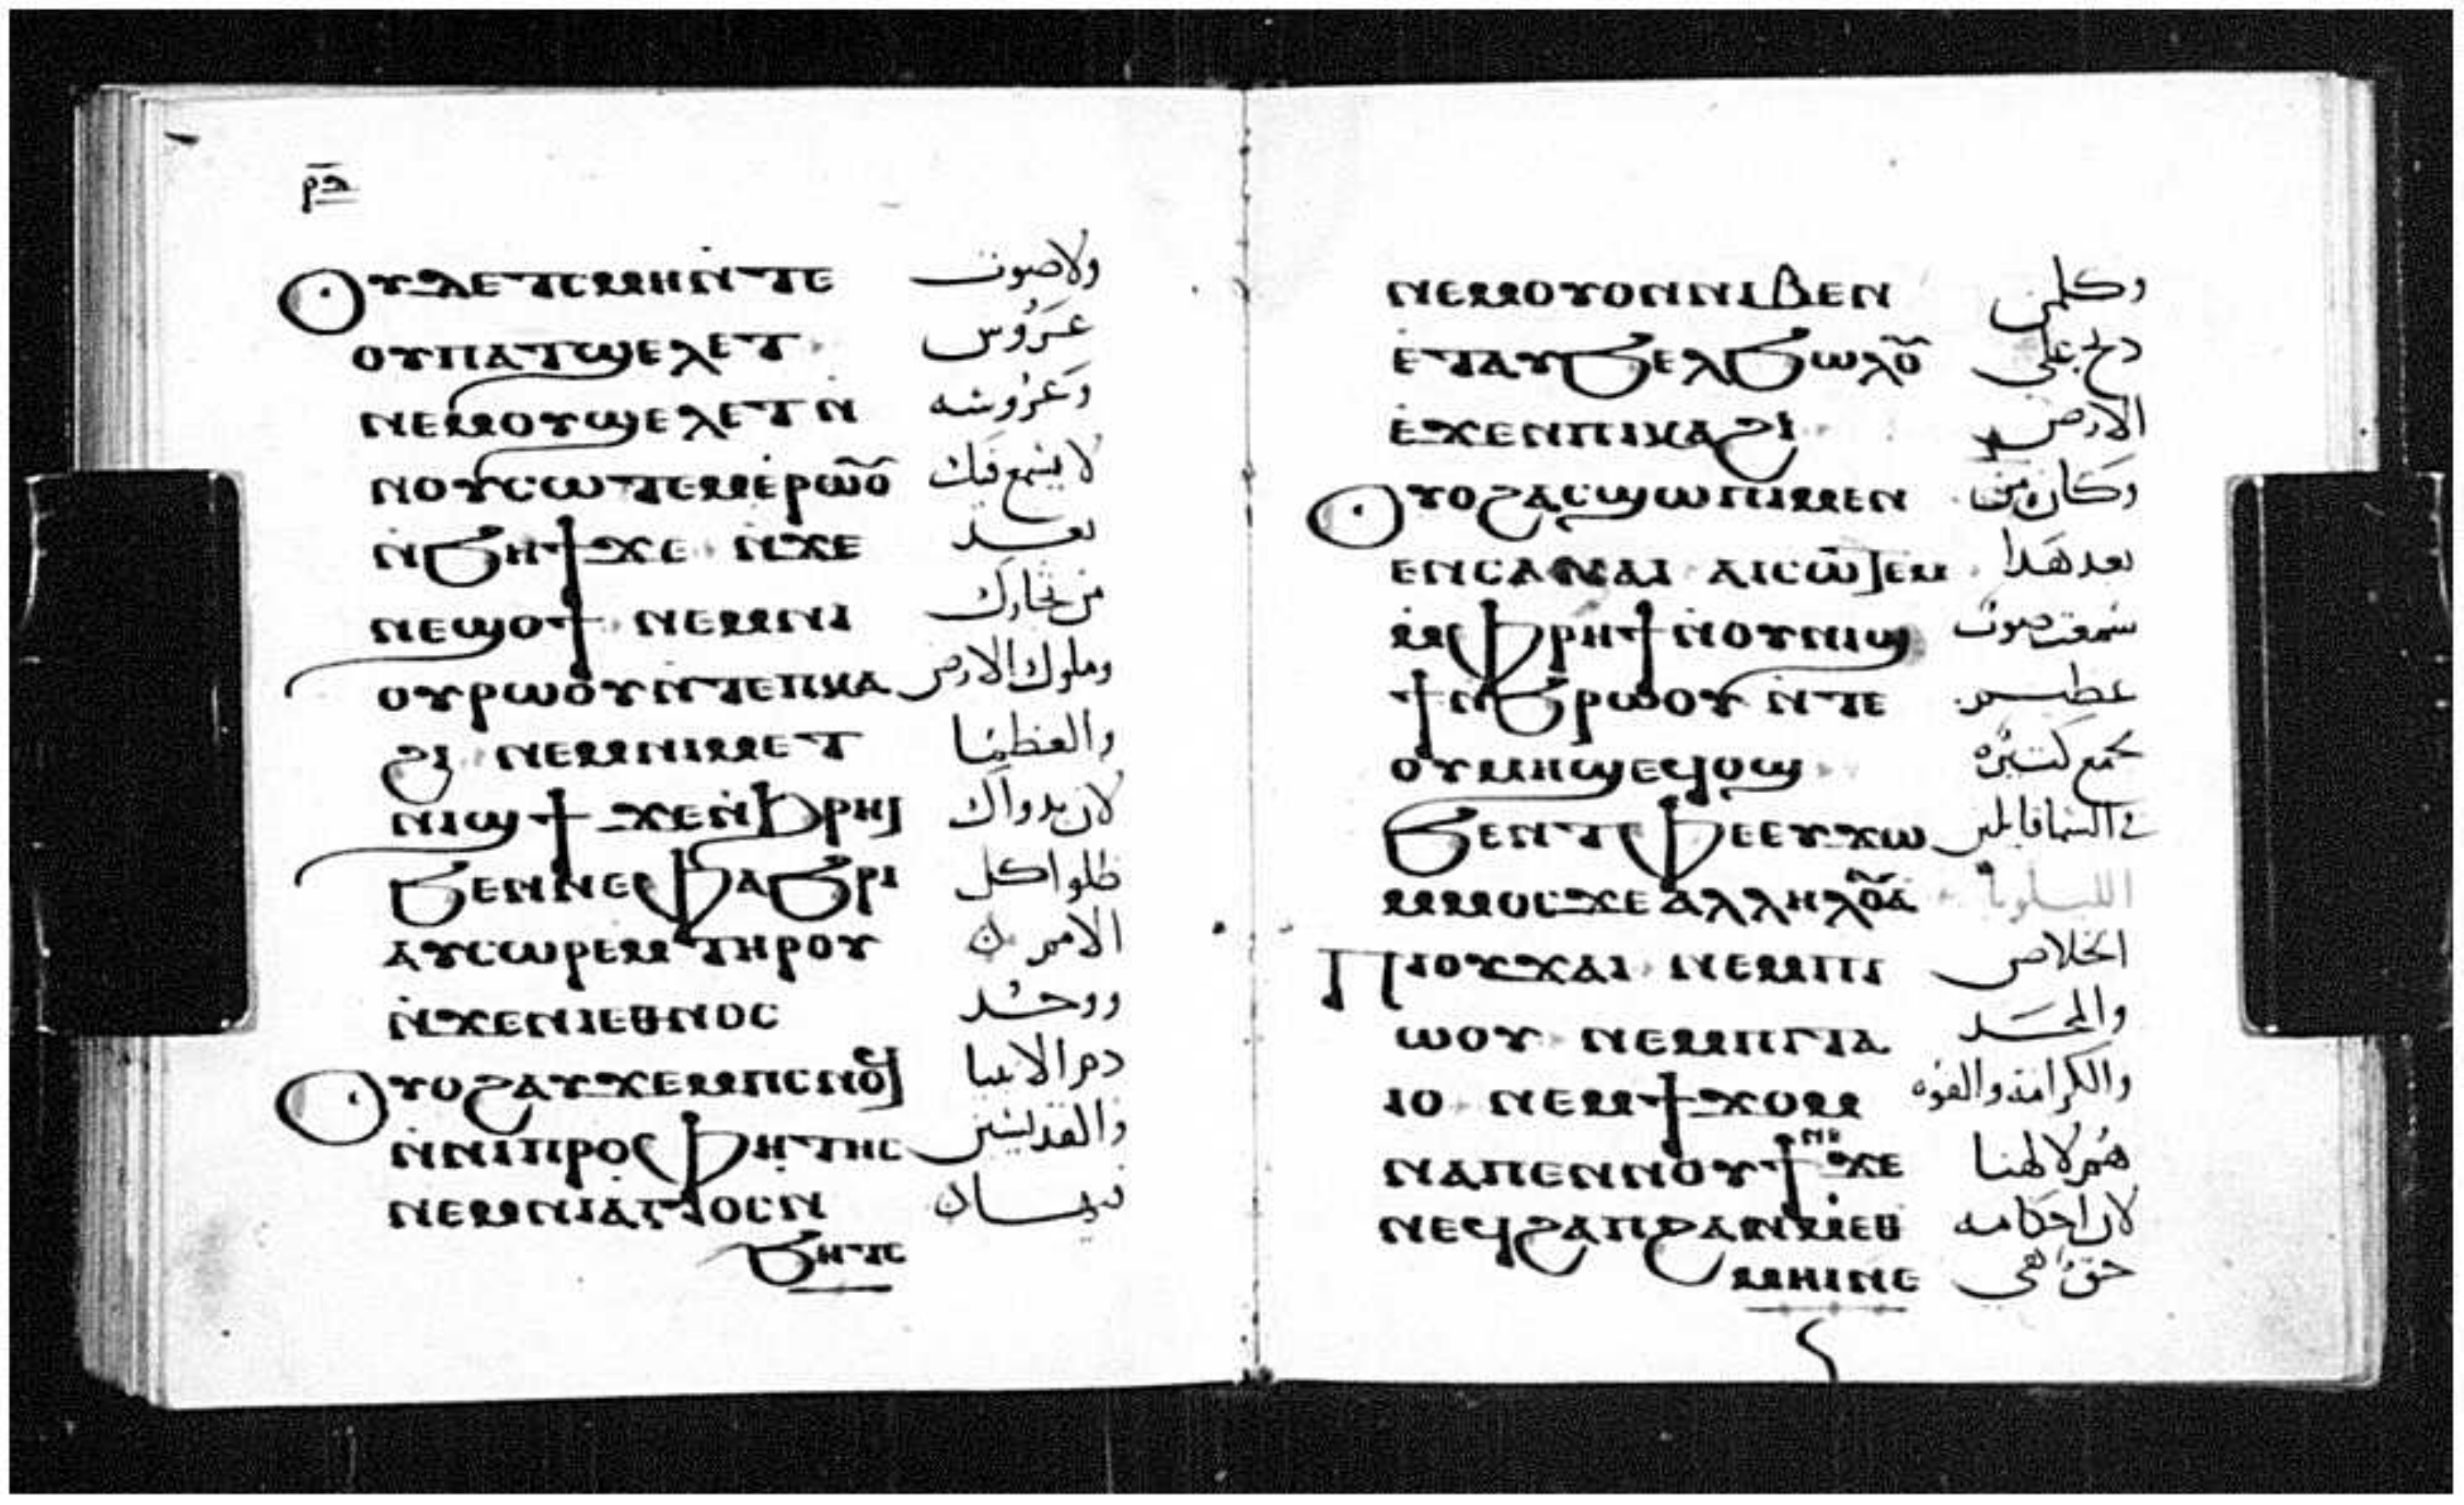 ⲣ̄ⲍ̄
ⲟⲩⲇⲉ ⲧⲥⲙⲏ ⲛ̀ⲧⲉ ولا صوت
ⲟⲩⲡⲁⲧϣⲉⲗⲉⲧ عَرُوس
ⲛⲉⲙ ⲟⲩϣⲉⲗⲉⲧ ⲛ̀ وعروسه
ⲛⲟⲩⲥⲱⲧⲉⲙ ⲉ̀ⲣⲱⲟⲩ لا يسمع فيك
ⲛ̀ϧⲏϯ ϫⲉ ⲛ̀ϫⲉ بعد
ⲛⲉϣⲟϯ ⲛⲉⲙ ⲛⲓ من تجارك
ⲟⲩⲣⲱⲟⲩ ⲛ̀ⲧⲉ ⲡⲕⲁ وملوك الارض
ϩⲓ ⲛⲉⲙ ⲛⲓⲙⲉⲧ والعظما
ⲛⲓϣϯ ϫⲉ ⲛ̀ϩⲣⲏⲓ لان بدواك
ϧⲉⲛ ⲛⲉⲫⲁϧⲣⲓ ظلوا كل
ⲁⲩⲥⲱⲣⲉⲙ ⲧⲏⲣⲟⲩ الامم
ⲛ̀ϫⲉ ⲛⲓⲉⲑⲛⲟⲥ ووجد
ⲟⲩⲟϩ ⲁⲩϫⲉⲙ ⲡⲥⲛⲟϥ دم الانبيا
ⲛ̀ⲛⲓⲡⲣⲟⲫⲏⲧⲏⲥ والقديسين
ⲛⲉⲙ ⲛⲓⲁ̀ⲅⲓⲟⲥ ⲛ
ϧⲏⲧⲥ
ⲛⲉⲙ ⲟⲩⲟⲛ ⲛⲓⲃⲉⲛ وكلمن
ⲉ̀ⲧⲁⲩϧⲉⲗϧⲱⲗⲟⲩ ذبح على
ⲉ̀ϫⲉⲛ ⲡⲓⲕⲁϩⲓ الارض
ⲟⲩⲟϩ ⲁⲥϣⲱⲡⲓ ⲙⲉⲛ وكان من
ⲉⲛⲥⲁ ⲛⲁⲓ ⲁⲓⲥⲱⲧⲉⲙ بعد هذا
ⲙ̀ⲫⲣⲏϯ ⲛ̀ⲟⲩⲛⲓϣ سمعت صوت
ϯ ⲛ̀ϧⲣⲱⲟⲩ ⲛ̀ⲧⲉ عظيم
ⲟⲩⲙⲏϣ ⲉϥⲟϣ كجمع كثيره
ϧⲉⲛ ⲧⲫⲉ ⲉⲩϫⲱ في السما قايلين
ⲙⲙⲟⲥ ϫⲉ ⲁⲗⲗⲏⲗⲟⲩⲁ الليلويا
ⲡⲓⲟⲩϫⲁⲓ ⲛⲉⲙ ⲡⲓ الخلاص
ⲱⲟⲩ ⲛⲉⲙ ⲡⲓⲧⲁ والمجد
ⲓⲟ ⲛⲉⲙ ϯϫⲟⲙ والكرامة والقوه
ⲛⲁ ⲡⲉⲛⲛⲟⲩϯ ⲛⲉ ϫⲉ هُم لالهنا
ⲛⲉϥϩⲁⲡ ϩⲁⲛⲙⲉⲑ لان احكامه
ⲙⲏⲓ ⲛⲉ حق هى